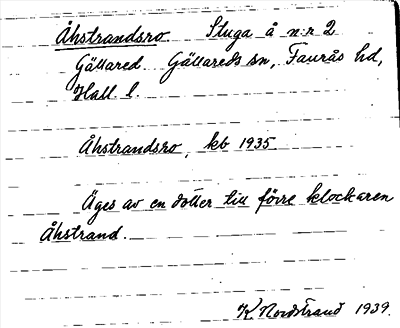 Åhstrandsro Stuga å n:r 2
Gällared. Gällareds sn, Faurås hd,
Hall. l.
Åhstrandsro, kb 1935
Äges av en dotter till förre klockaren
Åhstrand.
K Nordstrand 1939.